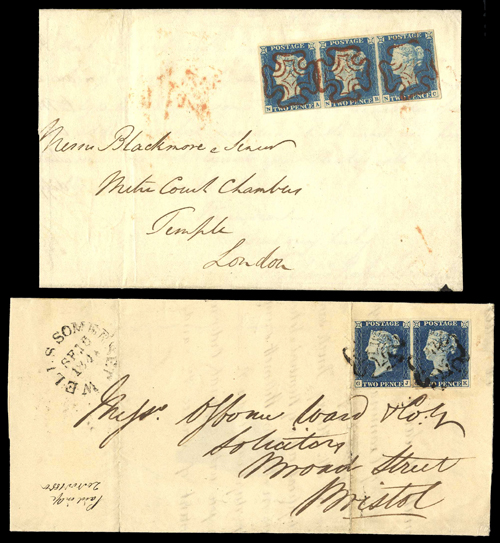 POSTAGE POSTAGE POSTAGE
TWO PENCE TWO PENCE TWO PENCE
Messrs Blackmore & Senior
Mitre Court Chambers
Temple
London
WELLS SOMERSET
SP 18
POSTAGE POSTAGE
TWO PENCE TWO PENCE
G J G K
Messrs. Osborne Ward & Co.
Solicitors
Broad Street
Bristol
Paid in